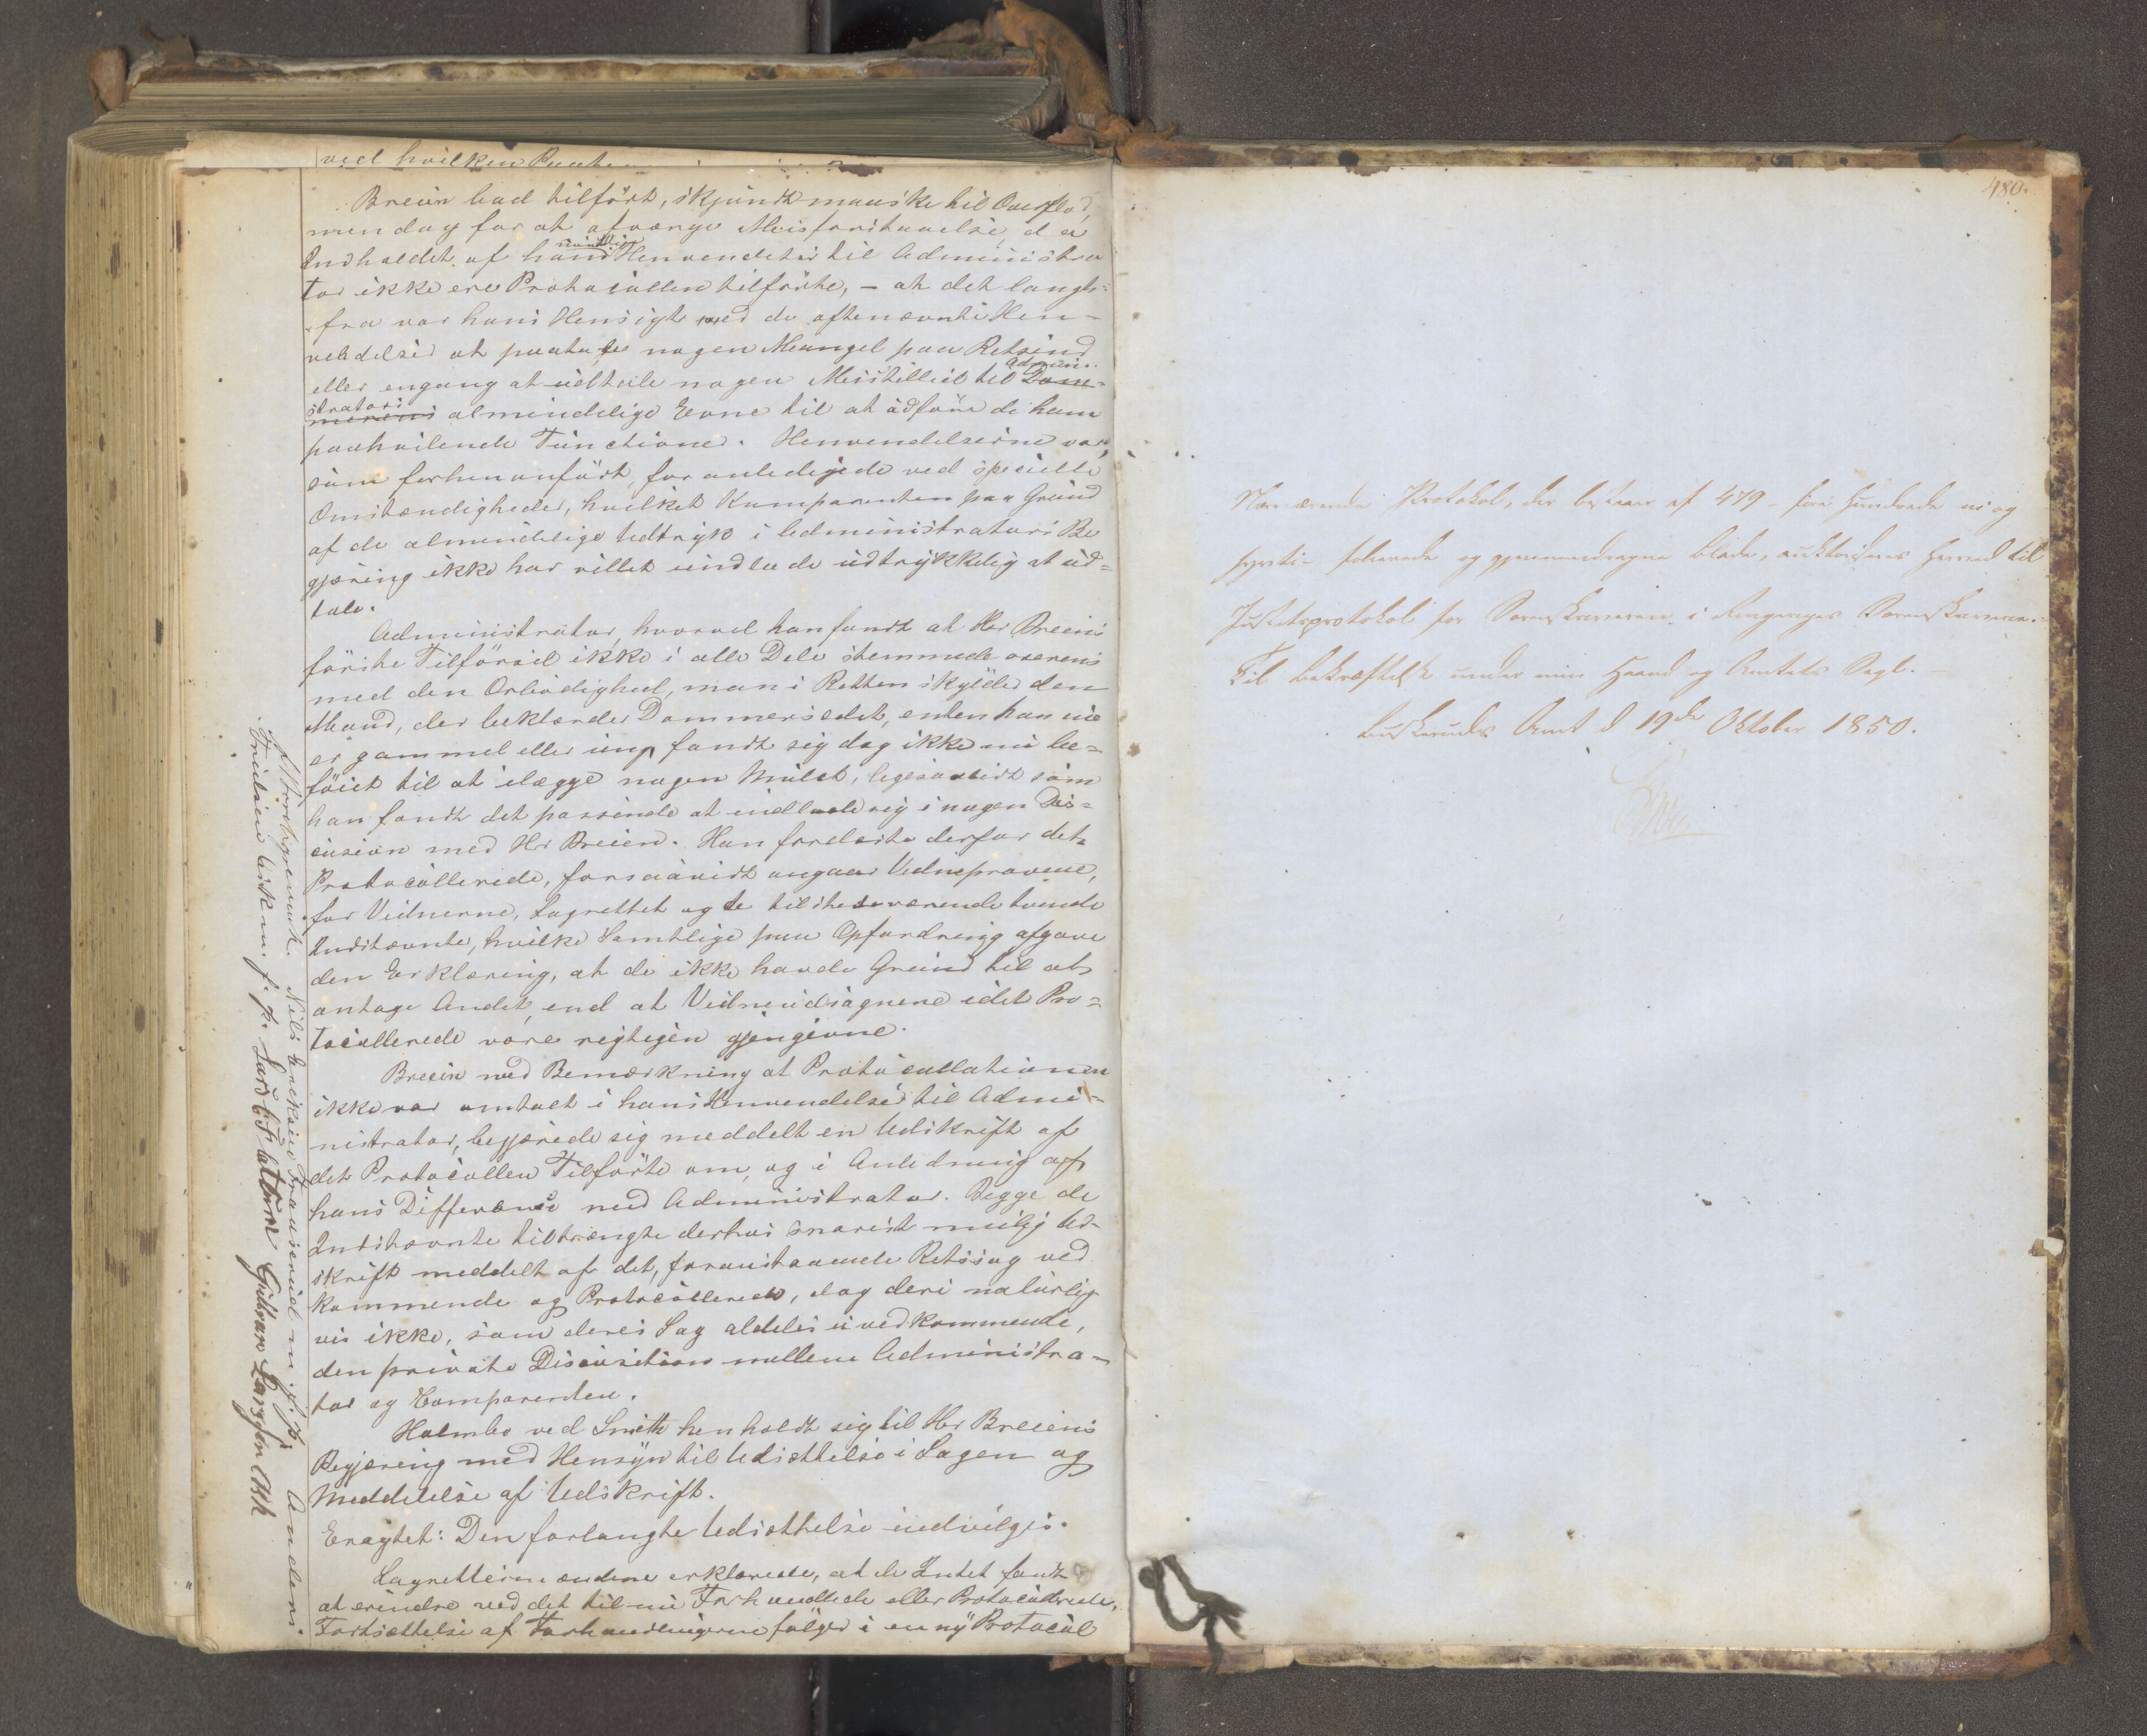 ved hvilken
Breien bad tilført, skjøndt maaske til Overflod,
men dog for at afværge Misforstaaelse, da
Indholdet af hans mundtlige Henvendelser til Administra
tor ikke ere Protocollen tilførte, – at det langt-
fra var hans Hensigt med de oftenævnte Hen-
vendelser at paatale nogen Mangel paa Retsind
eller engang at udtale nogen Mistillid til Admini-
strators almindelige Evne til at udføre de ham
paahvilende Functioner. Henvendelserne var,
som forhen anført, foranledigede ved specielle
Omstændigheder, hvilket Komparenten paa Grund
af de almindelige Udtryk i Administrators Be
gjæring ikke har villet undlade udtrykkelig at ud-
tale.
Administrator, hvorvel han fandt at Hr Breiens
første Tilførsel ikke i alle Dele stemmede overens
med den Ærbødighed, man i Retten skylder den
Mand, der beklæder Dommersædet, enten han nu
er gammel eller ung, fandt sig dog ikke nu be-
føiet til at ilægge nogen Mulct, ligesaalidt som
han fandt det passende at indlade sig i nogen Dis-
cusion med Hr Breien. Han forelæste derfor det
Protocollerede, forsaavidt angaar Vidneprovene,
for Vidnerne, Lagrettet og de tilstedeværende tvende
Indstævnte, hvilke Samtlige paa Opfordring afgave
den Erklæring, at de ikke havde Grund til at
antage Andet, end at Vidneudsagnene i det Pro-
tocollerede vare rigtigen gjengivne.
Breien med Bemærkning at Protocollationen
ikke var omtalt i hans Henvendelser til Admi-
nistrator, begjærede sig meddelt en Udskrift af
det Protocollen Tilførte om, og i Anledning af
hans Differance med Administrator. Begge de
Indstævnte tiltrængte derhos snarest muligt Ud-
skrift meddelt af det, foranstaaende Retssag ved
kommende og Protocollerede, dog deri naturlig
vis ikke, som deres Sag aldeles uvedkommende,
den private Discusition mellem Administra-
tor og Comparenten.
Holmbo ved Smith henholdt sig til Hr Breiens
Begjæring med Hensyn til Udsættelse i Sagen og
Meddelelse af Udskrift.
Eragtet: Den forlangte Udsættelse indvilges.
Lagrettesmændene erklærede, at de Intet fandt
at erindre ved det til nu Forhandlede eller Protocollerede.
Fortsættelse af Forhandlingerne følger i en ny Protocol
Nils Eriksen Frauserud m. f. p. Anders
m. f. p. Lars Gulbran Larssen Ask
480.
Nærværende Protokol, der bestaar af 479 – fire hundrede ni og
sytti – folierede og gjennemdragne Blade, auktoriseres herved til
Justitsprotokol for Sorenskriveren i Ringeriges Sorenskriverie.
Til Bekræftelse under min Haand og Amtets Segl.
Buskeruds Amt d 19de Oktober 1850.